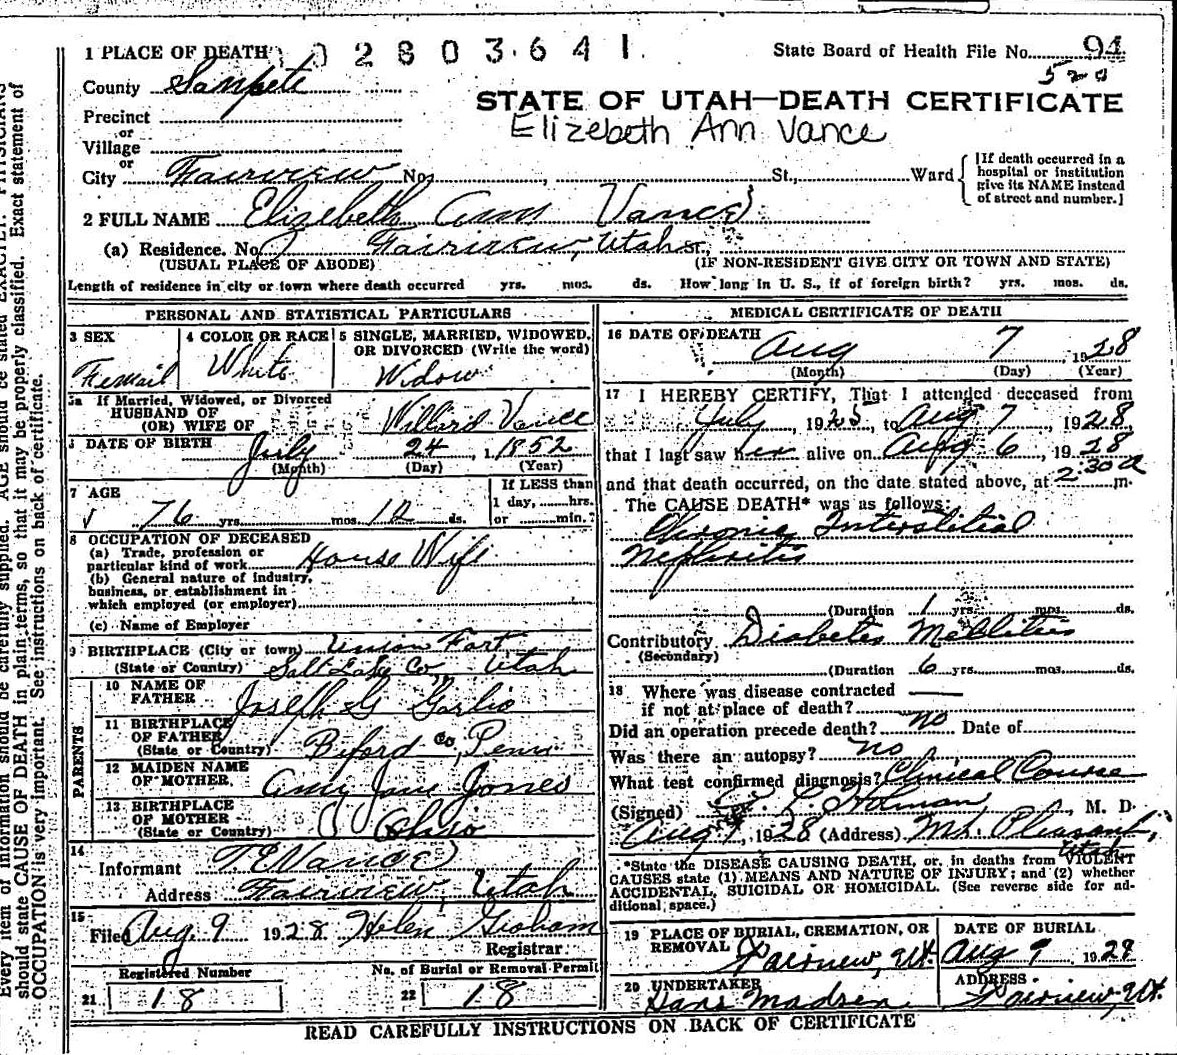 1 PLACE OF DEATH
0 2 8 0 3 6 4 1
State Board of Health File No. 94
520
County Sanpete
STATE OF UTAH—DEATH CERTIFICATE
Precinct
Elizebeth Ann Vance
or
Village
or
City Fairview No. St., Ward
[If death occurred in a
hospital or institution
give its NAME instead
of street and number.]
2 FULL NAME Elizebeth Ann Vance
(a) Residence. No. Fairview, Utah St.,
(USUAL PLACE OF ABODE) (IF NON-RESIDENT GIVE CITY OR TOWN AND STATE)
Length of residence in city or town where death occurred yrs. mos. ds. How long in U. S., if of foreign birth? yrs. mos. ds.
PERSONAL AND STATISTICAL PARTICULARS
3 SEX 4 COLOR OR RACE 5 SINGLE, MARRIED, WIDOWED,
OR DIVORCED (Write the word)
Femail White Widow
5a If Married, Widowed, or Divorced
HUSBAND OF
(OR) WIFE OF Willard Vance
6 DATE OF BIRTH July 24, 1852
(Month) (Day) (Year)
7 AGE
76 yrs. mos. 12 ds.
If LESS than
1 day, hrs.
or min.?
8 OCCUPATION OF DECEASED
(a) Trade, profession or
particular kind of work House Wife
(b) General nature of industry,
business, or establishment in
which employed (or employer)
(c) Name of Employer
9 BIRTHPLACE (City or town) Union Fort
(State or Country) Salt Lake Co, Utah
PARENTS
10 NAME OF
FATHER Joseph G Garlic
11 BIRTHPLACE
OF FATHER
(State or Country) Biford Co, Penn
12 MAIDEN NAME
OF MOTHER Amy Jane Jones
13 BIRTHPLACE
OF MOTHER
(State or Country) Ohio
14
Informant T. E Vance
Address Fairview, Utah
15
Filed Aug. 9 1928 Helen Graham
Registrar.
Registered Number No. of Burial or Removal Permit
21 18 22 18
MEDICAL CERTIFICATE OF DEATH
16 DATE OF DEATH
Aug 7, 1928
(Month) (Day) (Year)
17 I HEREBY CERTIFY, That I attended deceased from
July, 1925, to Aug 7, 1928,
that I last saw her alive on Aug 6, 1928
and that death occurred, on the date stated above, at 2:30 a m.
The CAUSE DEATH* was as follows:
Chronic Interstitial
Nephritis
(Duration 1 yrs. mos. ds.
Contributory Diabetes Mellitus
(Secondary)
(Duration 6 yrs. mos. ds.
18 Where was disease contracted
if not at place of death?
Did an operation precede death? no Date of
Was there an autopsy? no
What test confirmed diagnosis? Clinical Course
(Signed) Holman, M. D.
Aug 9, 1928 (Address) Mt. Pleasant,
Utah
*State the DISEASE CAUSING DEATH, or, in deaths from VIOLENT
CAUSES state (1) MEANS AND NATURE OF INJURY; and (2) whether
ACCIDENTAL, SUICIDAL OR HOMICIDAL. (See reverse side for ad-
ditional space.)
19 PLACE OF BURIAL, CREMATION, OR
REMOVAL Fairview, Ut.
DATE OF BURIAL
Aug 9 1928
20 UNDERTAKER
Hans Madsen
ADDRESS
Fairview, Ut.
READ CAREFULLY INSTRUCTIONS ON BACK OF CERTIFICATE
Every item of information should be carefully supplied. AGE should be stated EXACTLY. PHYSICIANS
should state CAUSE OF DEATH in plain terms, so that it may be properly classified. Exact statement of
OCCUPATION is very important. See instructions on back of certificate.